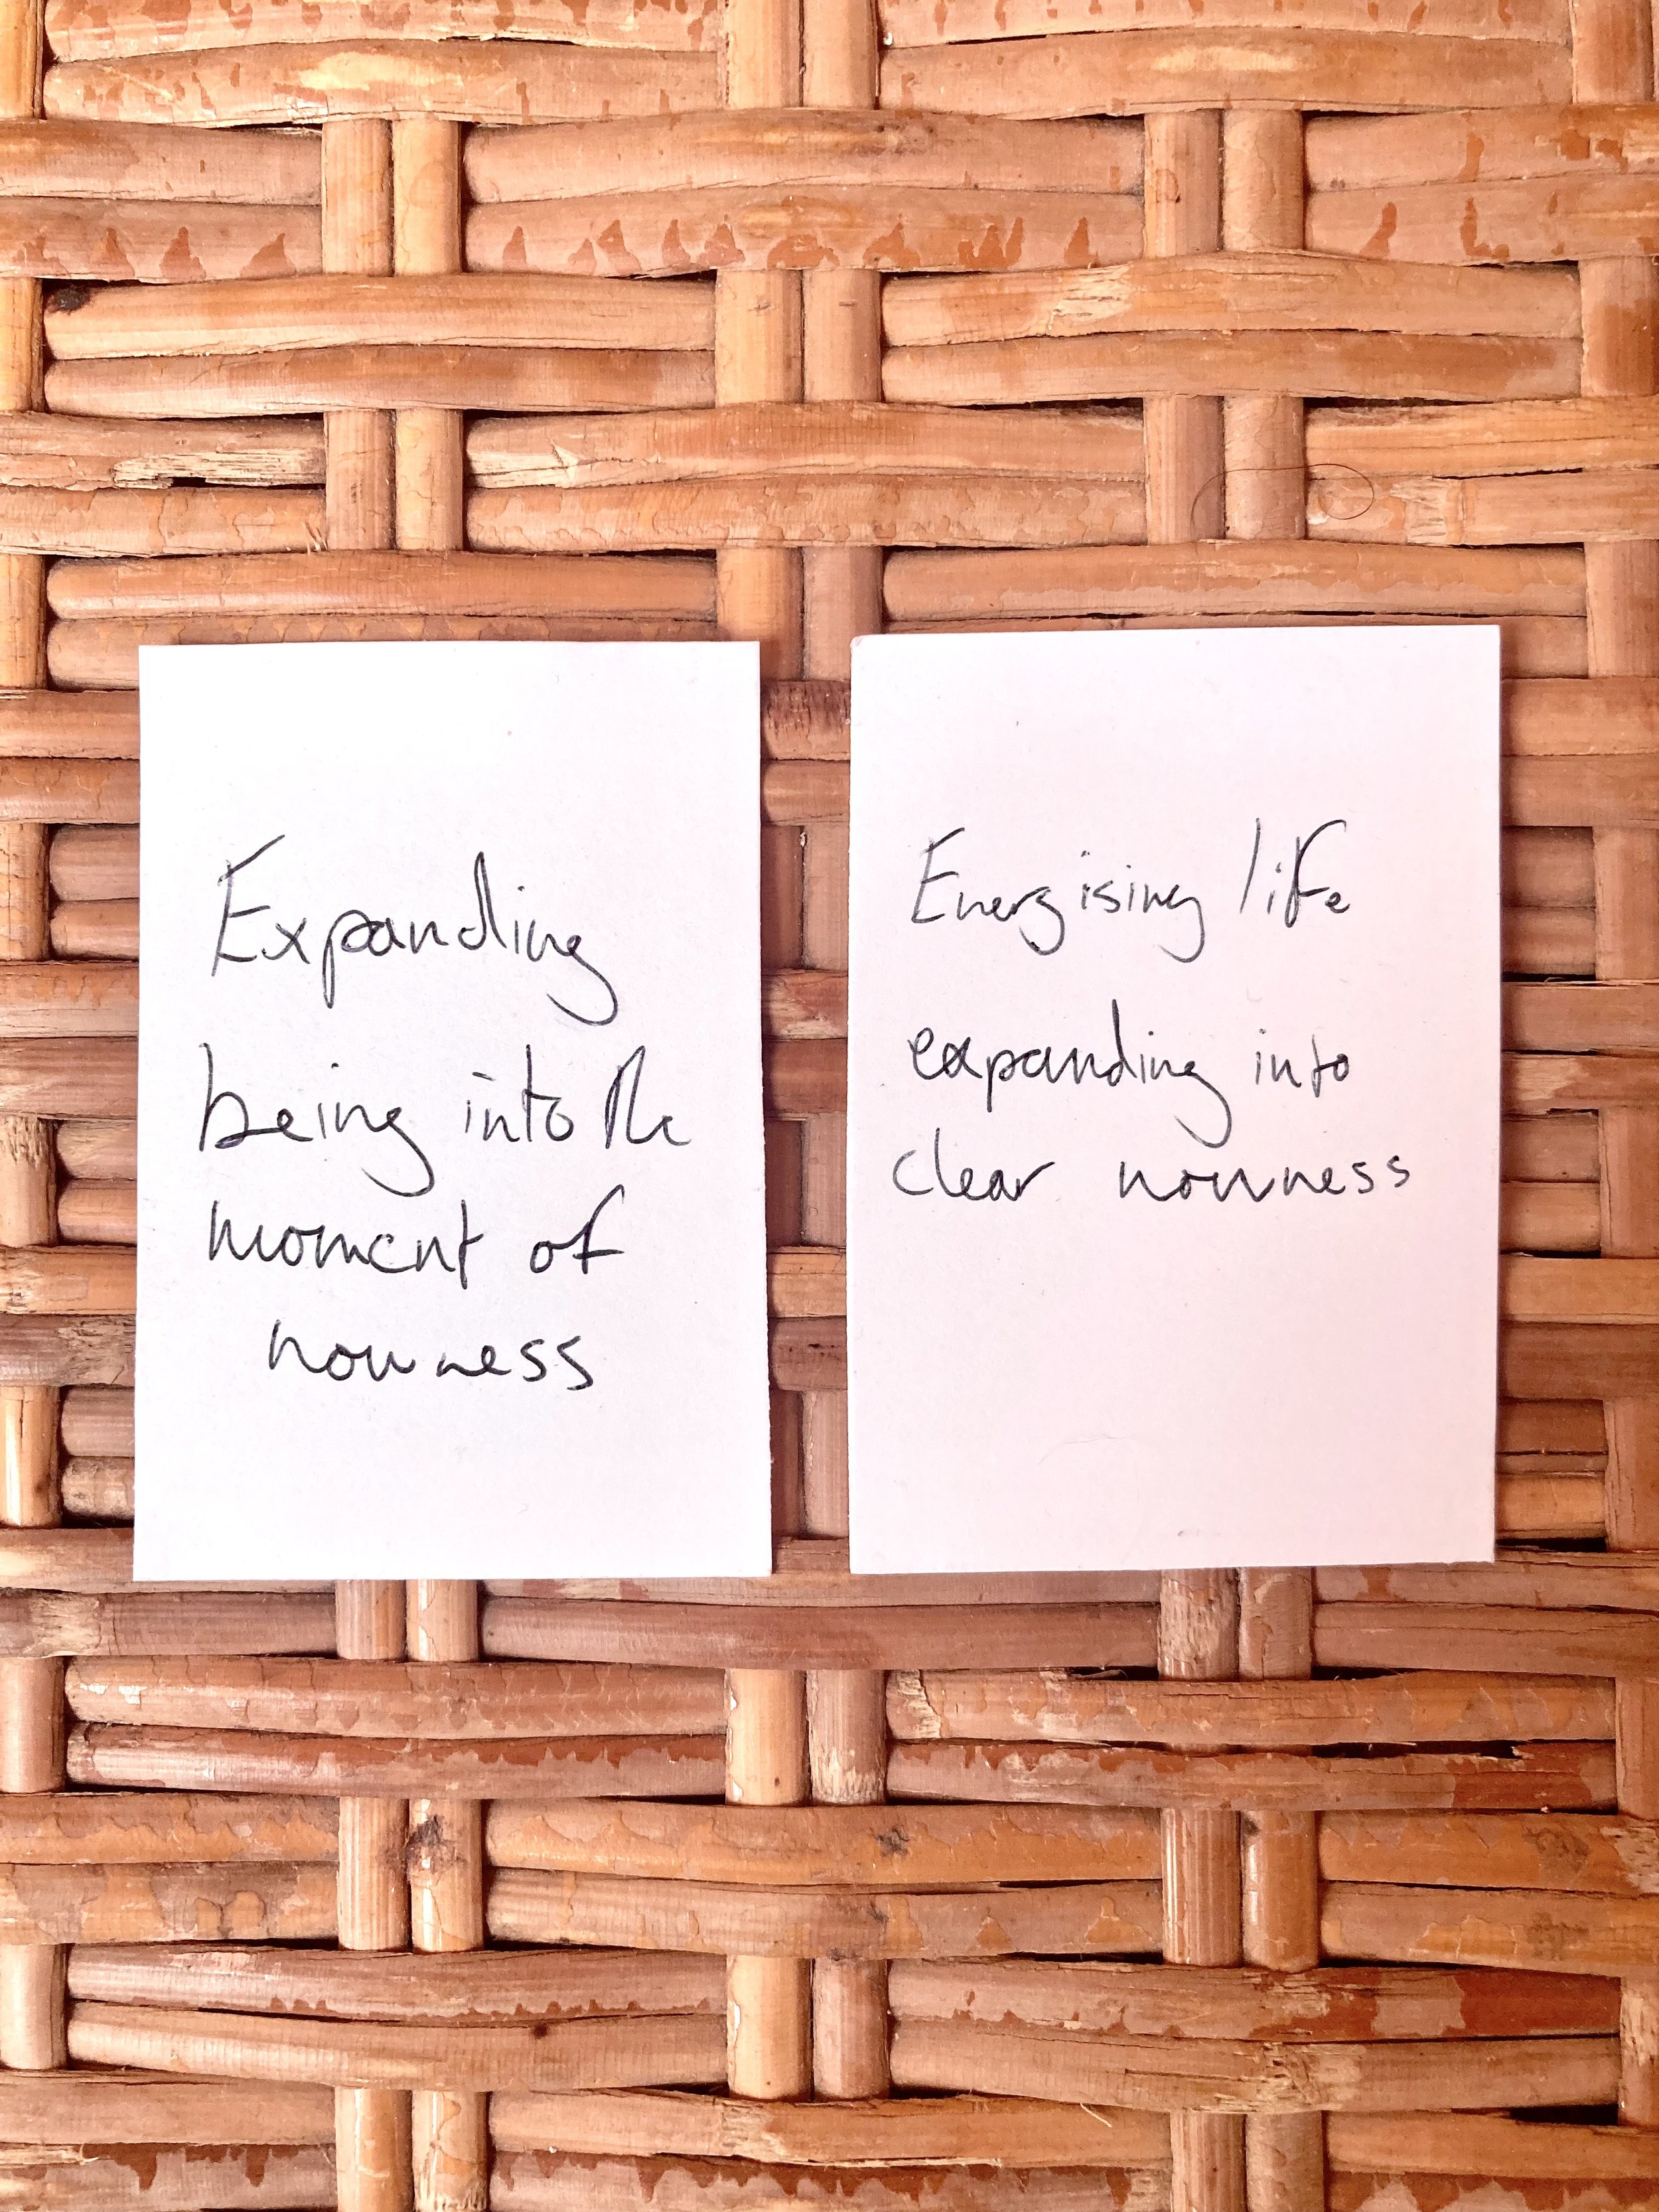 Expanding
being into the
moment of
nowness
Energising life
expanding into
clear nowness